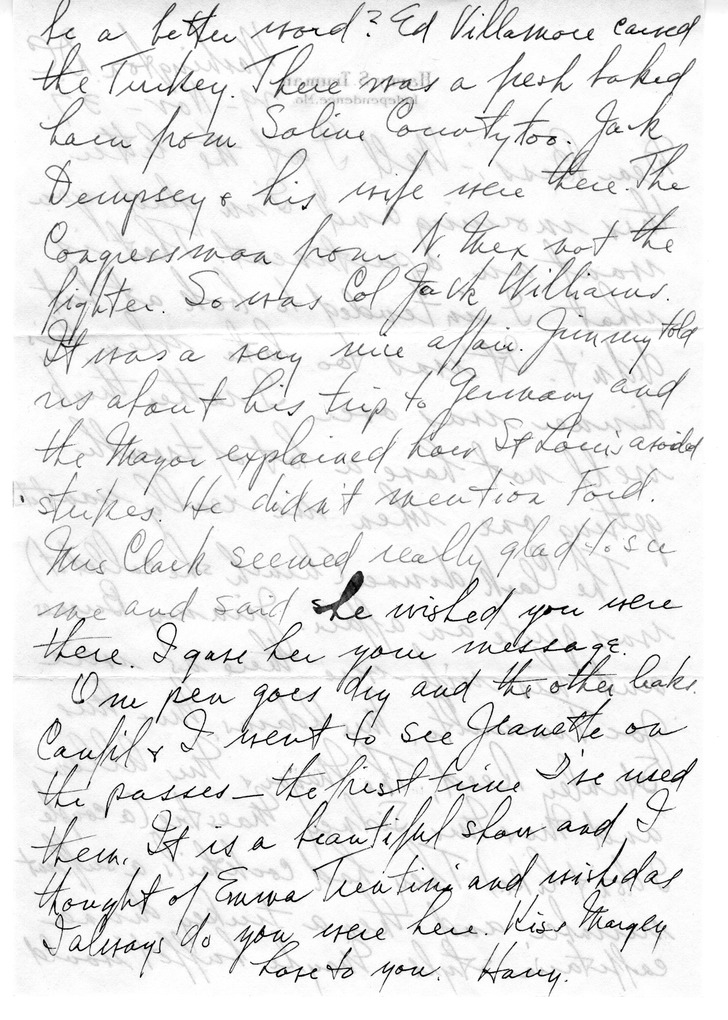 be a better word? Ed Villamore carved
the Turkey. There was a fresh baked
ham from Saline County too. Jack
Dempsey & his wife were there. The
Congressman from N. Mex not the
fighter. So was Col Jack Williams.
It was a very nice affair. Jimmy told
us about his trip to Germany and
the Mayor explained how St Louis avoided
strikes. He didn't mention Ford.
Mrs Clark seemed really glad to see
me and said she wished you were
there. I gave her your message.
One pen goes dry and the other leaks.
Canfil & I went to see Jeanette on
the passes – the first time I've used
them. It is a beautiful show and I
thought of Emma Trentini and wished as
I always do you were here. Kiss Margey
love to you. Harry.
Harry S. Truman
Independence, Mo.